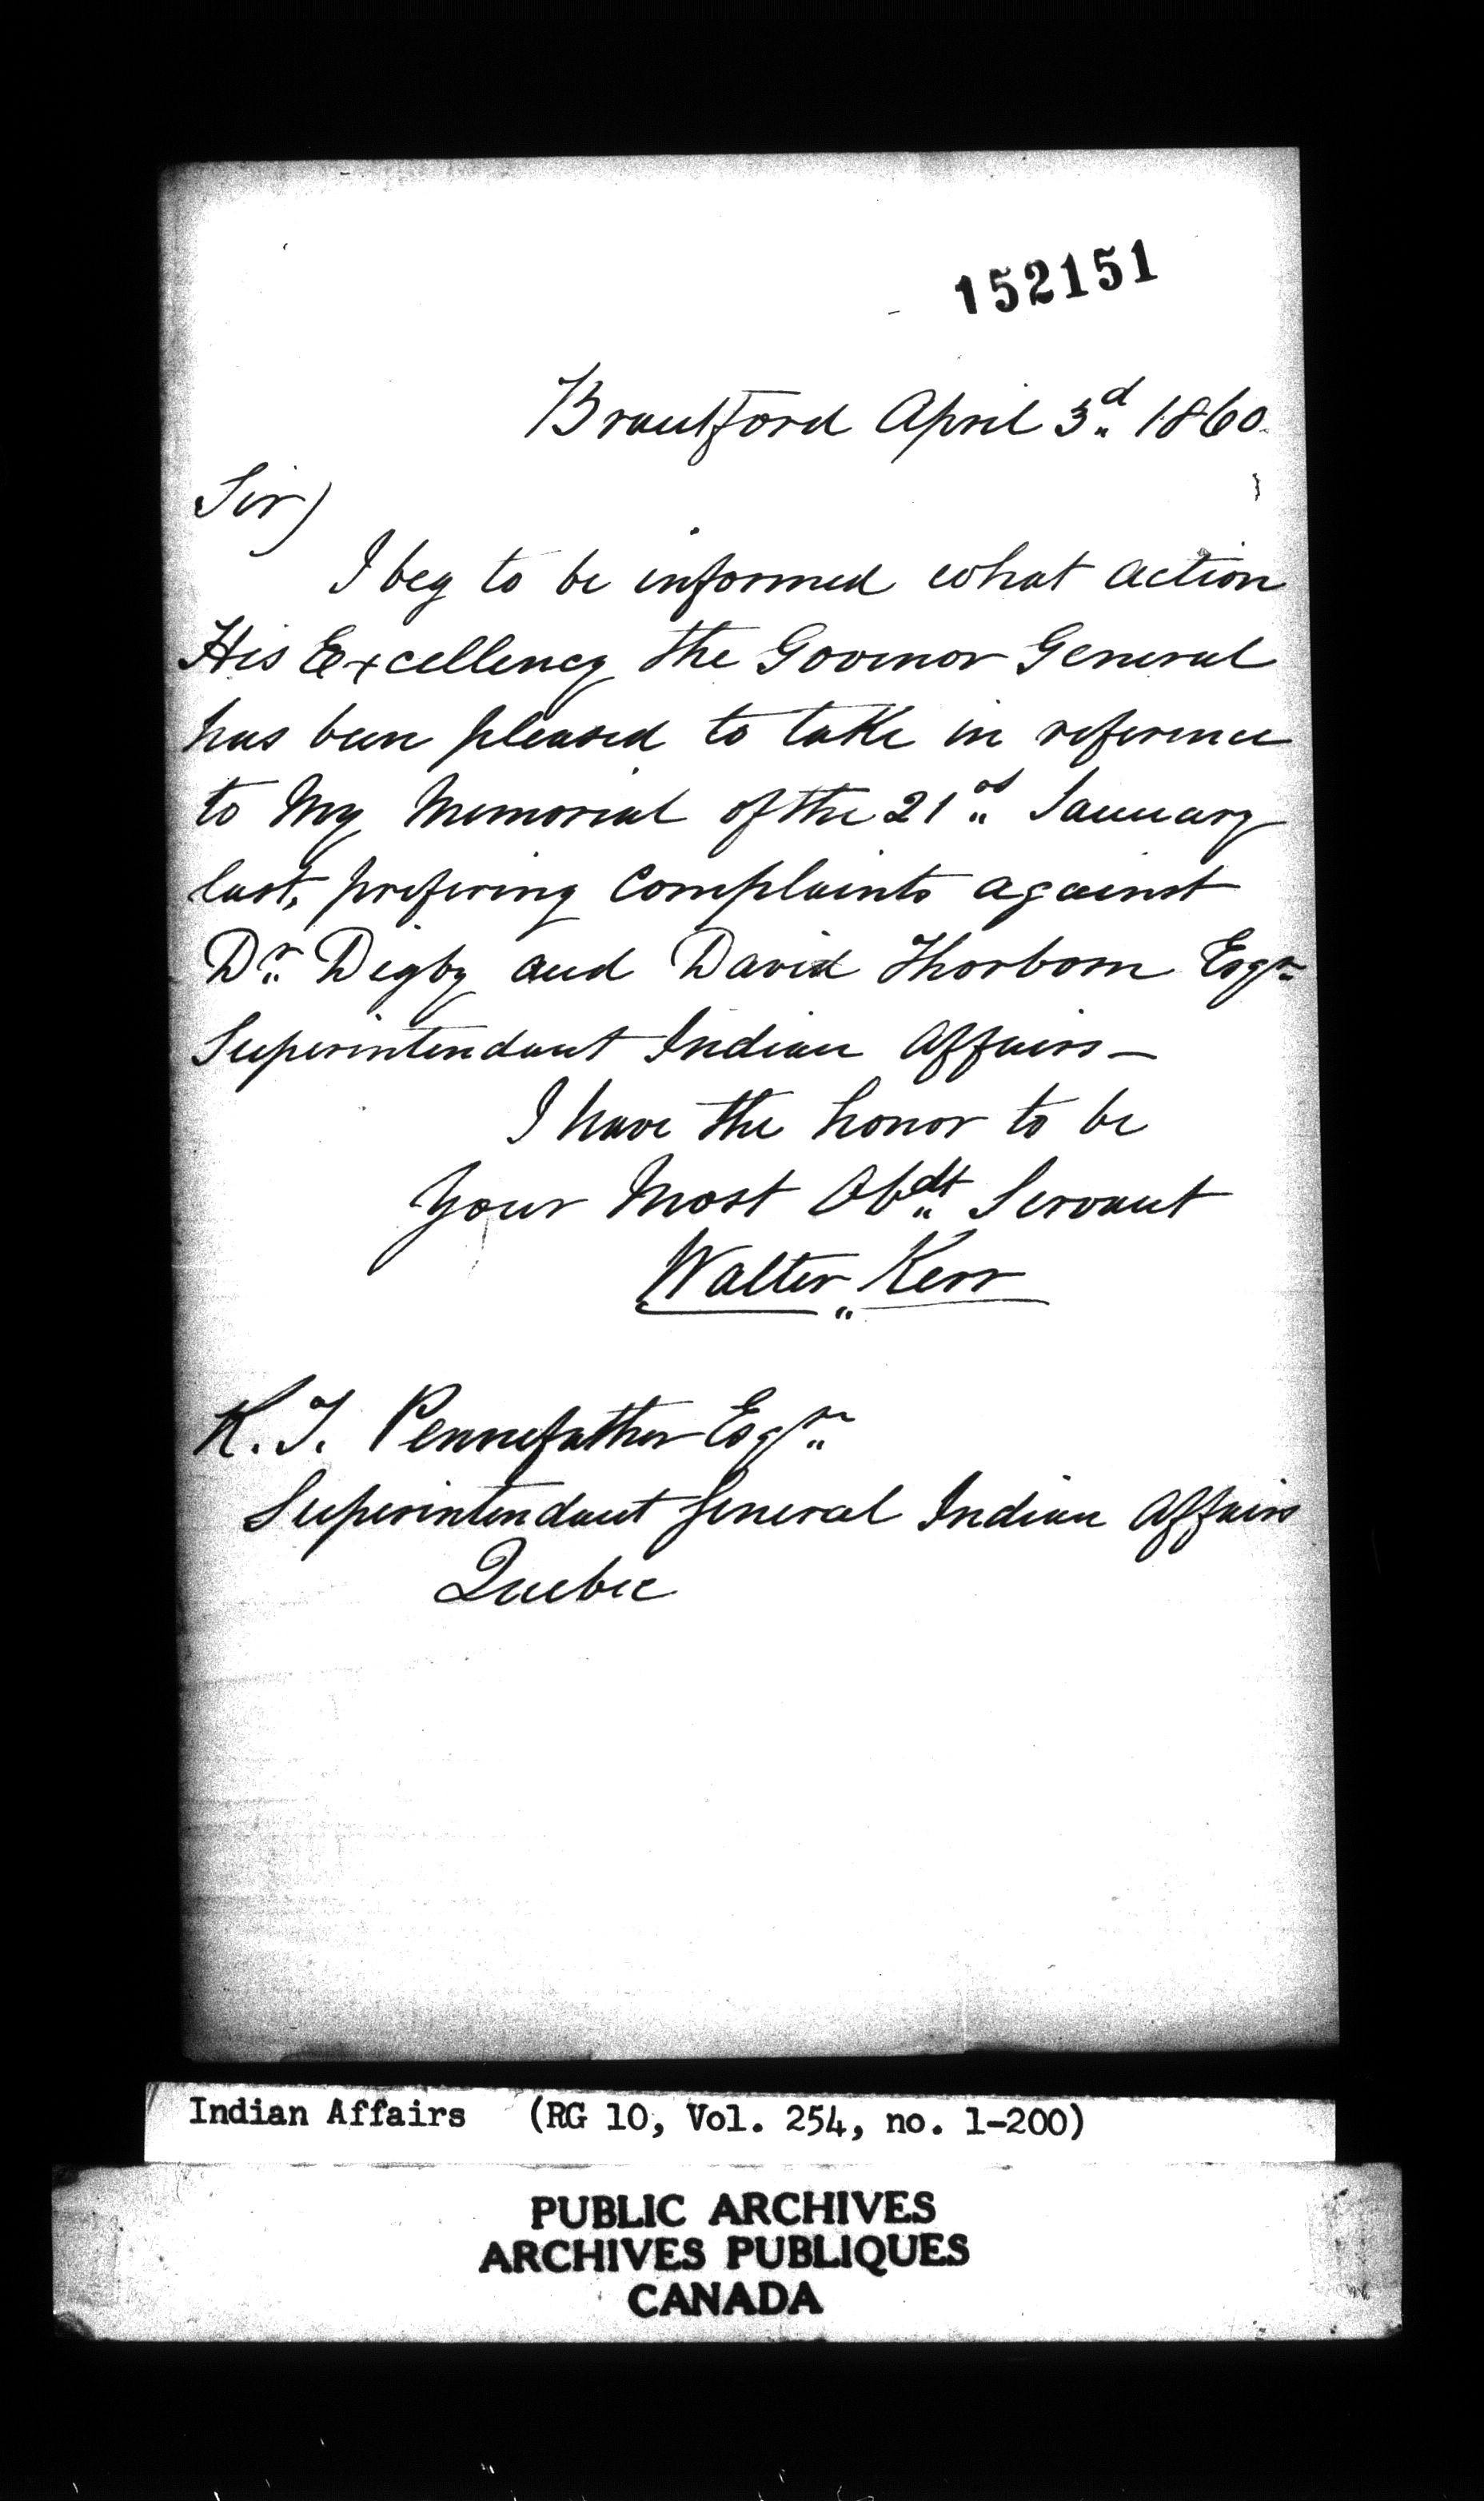 152151
Brantford April 3d 1860
Sir)
I beg to be informed what action
His Excellency the Govenor General
has been pleased to take in reference
to My Memorial of the 21st January
last, prefering Complaints against
Dr. Digby and David Thorborn Esqr
Superintendant Indian Affairs—
I have the honor to be
Your Most Obdt Servant
Walter Kerr
R. T. Pennefather Esqr
Superintendant General Indian Affairs
Quebec
Indian Affairs (RG 10, Vol. 254, no. 1-200)
PUBLIC ARCHIVES
ARCHIVES PUBLIQUES
CANADA